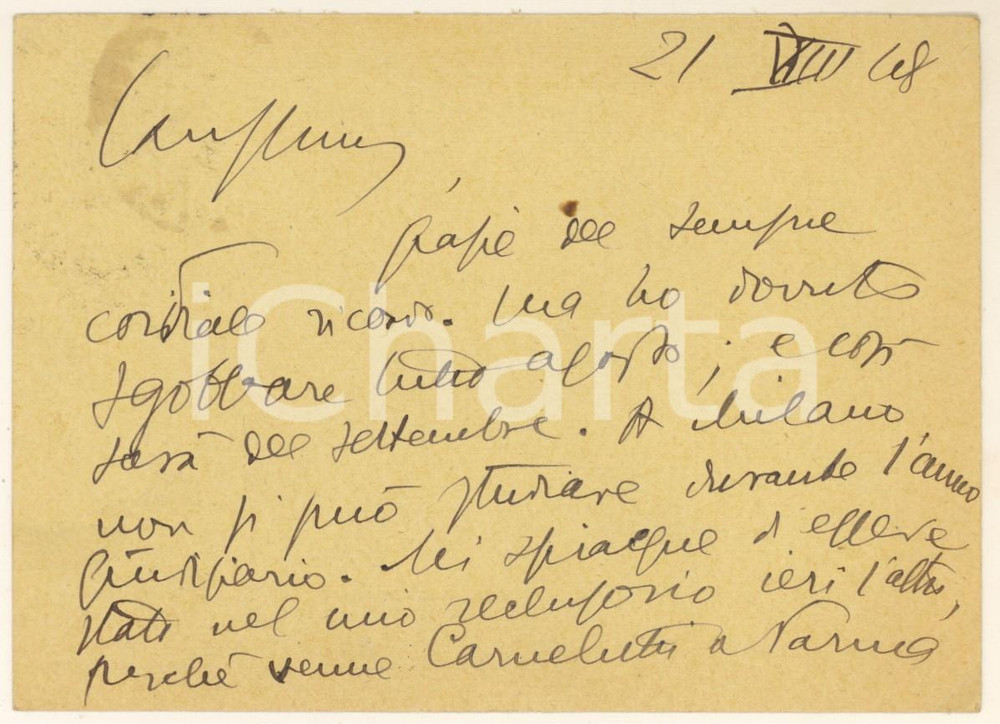 21 VIII 48
Carissimo,
grazie del sempre
cordiale ricordo. Ma ho dovuto
sgobbare tutto agosto; e così
sarà del settembre. A Milano
non si può studiare durante l'anno
giudiziario. Mi spiacque di essere
stato nel mio reclusorio ieri l'altro,
perché venne Carnelutti a
iCharta